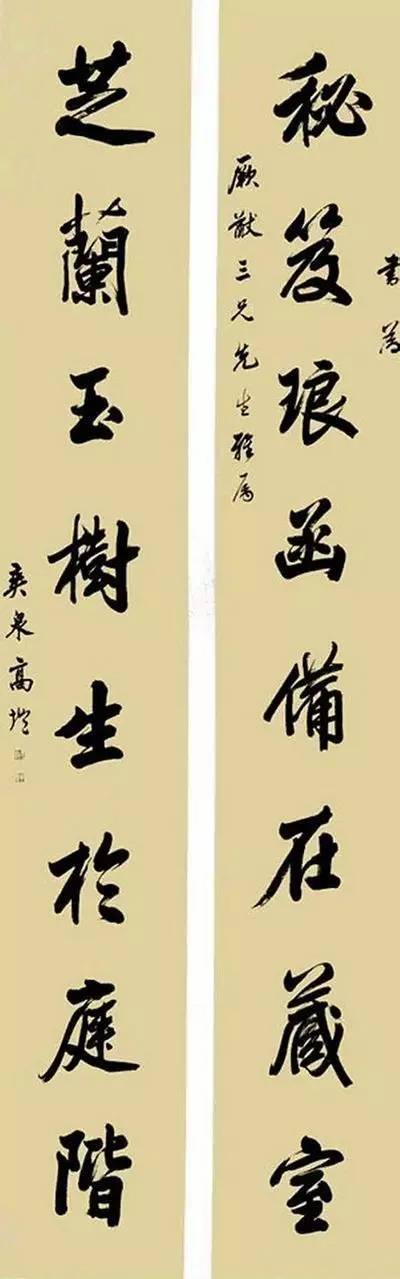 書為
秘笈琅函備在藏室
厥猷三兄先生雅属
芝蘭玉樹生於庭階
爽泉高塏